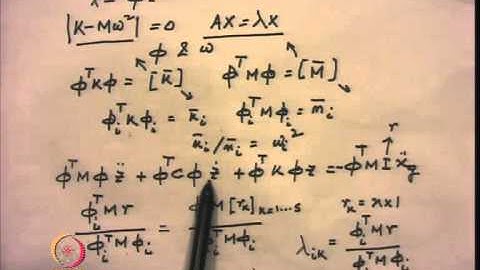 |K-Mω²| = 0 AX = λX
φ & ω
φᵀKφ = [K̄] φᵀMφ = [M̄]
φᵢᵀKφᵢ = k̄ᵢ φᵢᵀMφᵢ = m̄ᵢ
k̄ᵢ/m̄ᵢ = ωᵢ² r
φᵀMφz̈ + φᵀCφż + φᵀKφz = -φᵀMIẍg
φᵢᵀMr / φᵢᵀMφᵢ = M[rₖ]ₖ₌₁…ₛ / ᵀMφᵢ rₖ = n×1
λᵢₖ = φᵢᵀMr / φᵢᵀMφᵢ